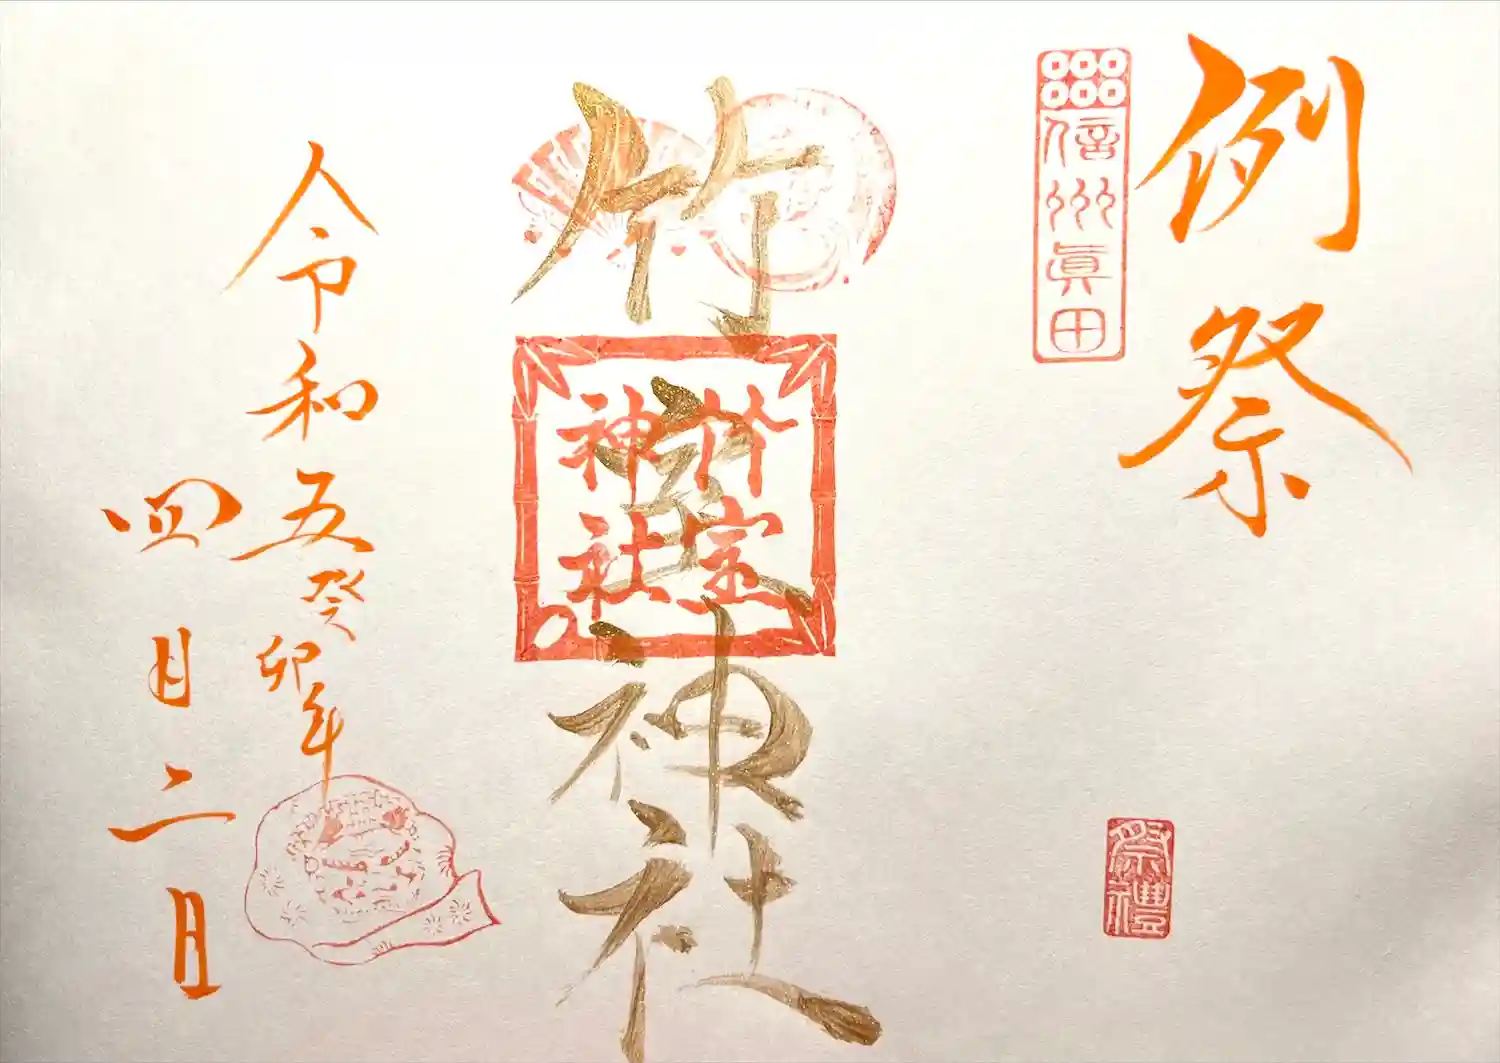 例祭
信州眞田
祭禮
竹室神社
竹室
神社
令和五癸卯年
四月二日